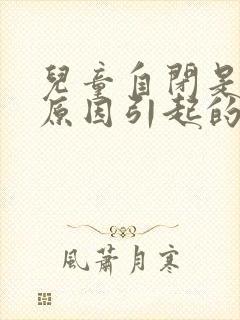 兒童自閉是
原因引起的
風蕭月寒